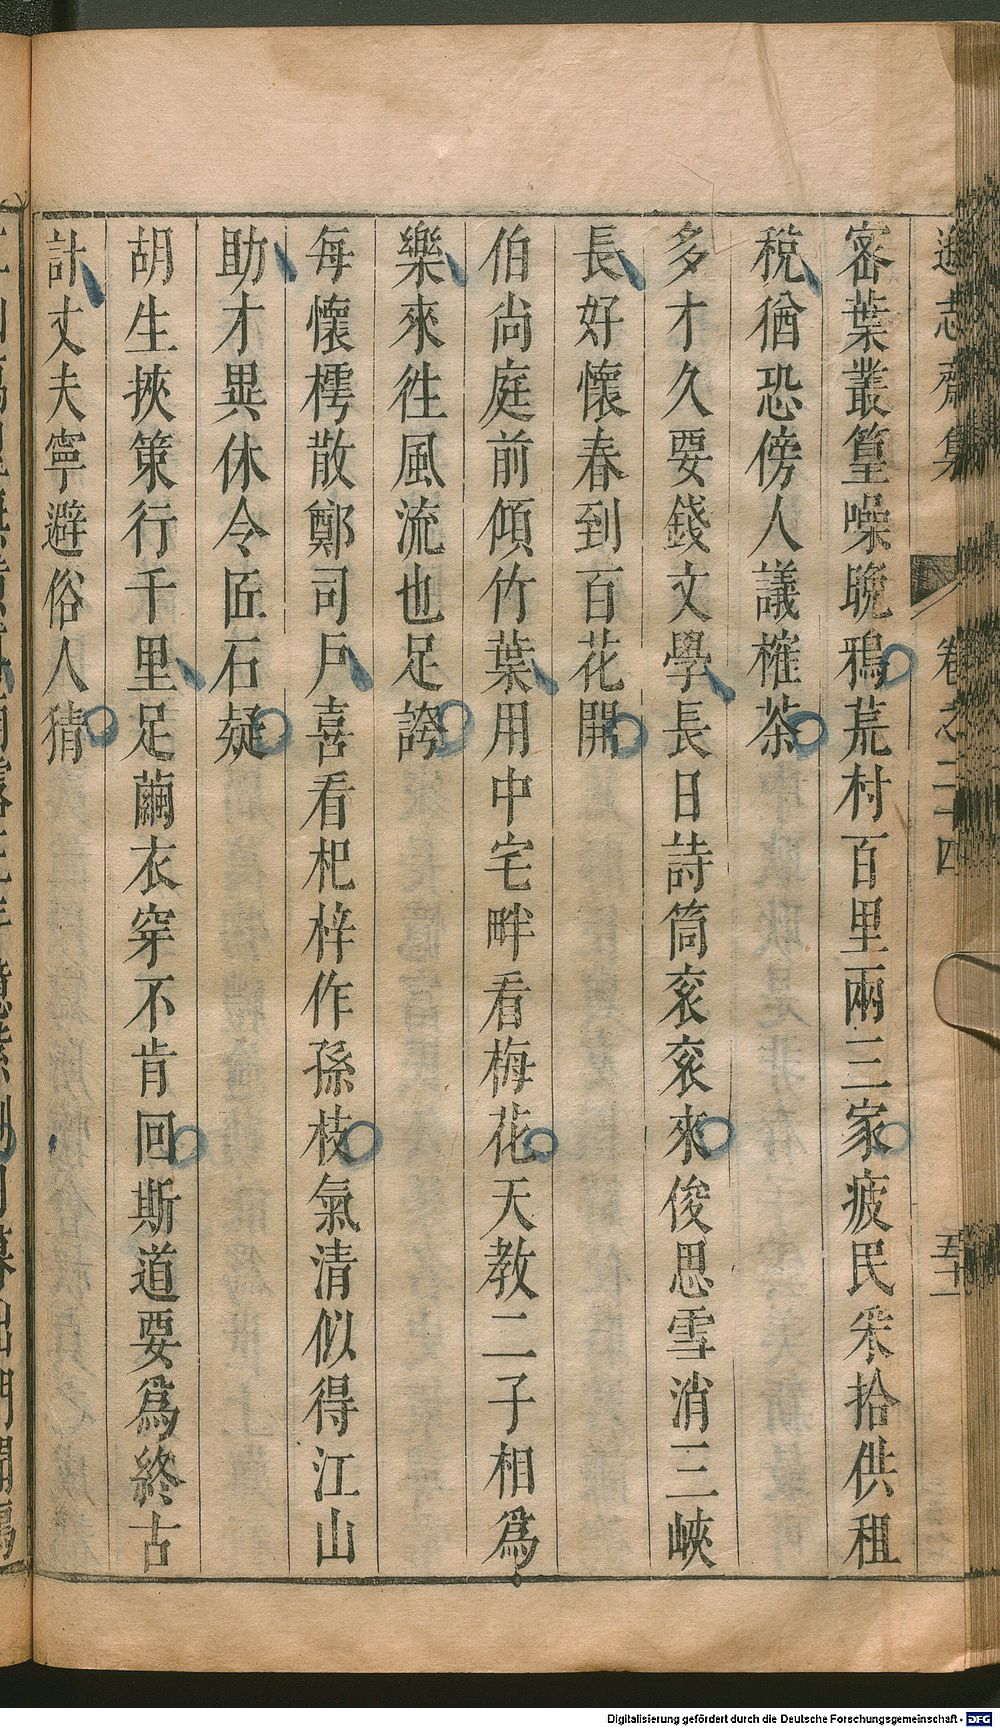 遜志齋集 卷之二十四 五十一
密葉叢篁噪晚鴉荒村百里兩三家疲民采拾供租
稅猶恐傍人議榷茶
多才久要錢文學長日詩筒衮衮來俊思雪消三峽
長好懷春到百花開
伯尚庭前傾竹葉用中宅畔看梅花天教二子相爲
樂來徃風流也足誇
每懷樗散鄭司戶喜看杞梓作孫枝氣清似得江山
助才異休令匠石疑
胡生挾策行千里足繭衣穿不肯回斯道要爲終古
計丈夫寧避俗人猜
Digitalisierung gefördert durch die Deutsche Forschungsgemeinschaft - DFG